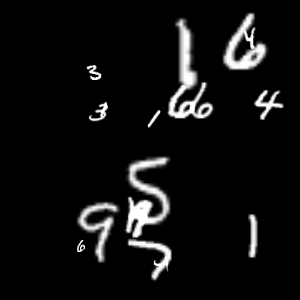 1 6 4
3
3 1 6 6 4
5
9 1
6 7